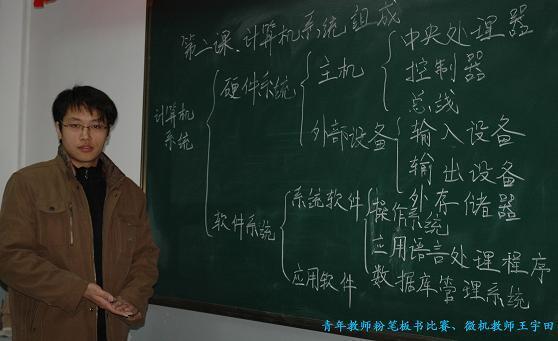 第二课、计算机系统组成
计算机
系统
硬件系统
主机
中央处理器
控制器
总线
外部设备
输入设备
输出设备
外存储器
软件系统
系统软件
操作系统
应用语言处理程序
数据库管理系统
应用软件
青年教师粉笔板书比赛、微机教师王宇田